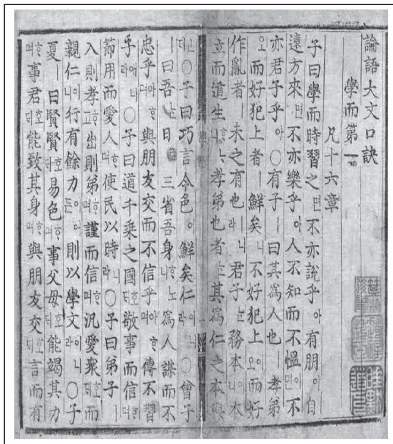 論語大文口訣
學而第一
凡十六章
子曰學而時習之면不亦說乎아有朋이自
遠方來면不亦樂乎아人不知而不慍이면不
亦君子乎아○有子ㅣ曰其爲人也ㅣ孝弟
오而好犯上者ㅣ鮮矣니不好犯上이오而好
作亂者ㅣ未之有也ㅣ니라君子는務本이니本
立而道生孝弟也者는其爲仁之本與
○子曰巧言令色이鮮矣仁이니라○曾子
ㅣ曰吾ㅣ日三省吾身爲人謀而不
忠乎아與朋友交而不信乎아傳不習
乎○子曰道千乘之國敬事而信
節用而愛人使民以時니라○子曰弟子ㅣ
入則孝出則弟謹而信汎愛衆而
親仁이니行有餘力則以學文이니라○子
夏ㅣ曰賢賢易色事父母能竭其力
事君能致其身與朋友交言而有